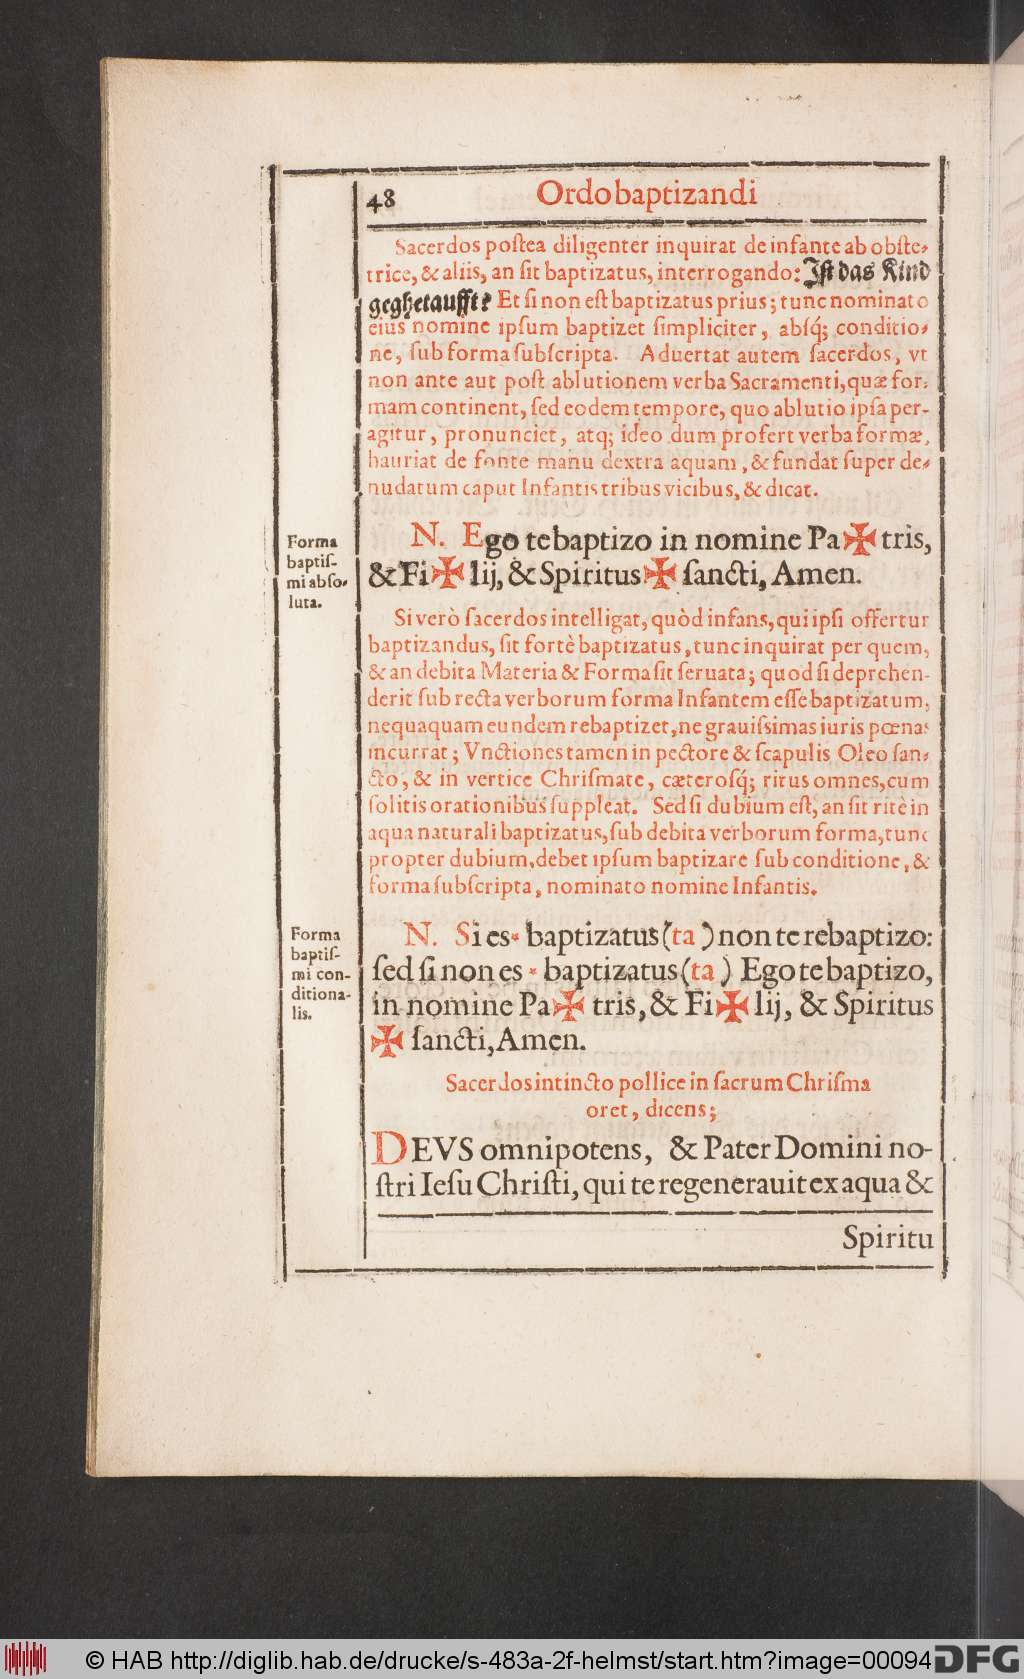 48 Ordo baptizandi
Sacerdos postea diligenter inquirat de infante ab obste-
trice, & aliis, an sit baptizatus, interrogando: Ist das Kind
geghetaufft? Et si non est baptizatus prius; tunc nominato
eius nomine ipsum baptizet simpliciter, absq́; conditio-
ne, sub forma subscripta. Aduertat autem sacerdos, vt
non ante aut post ablutionem verba Sacramenti, quæ for-
mam continent, sed eodem tempore, quo ablutio ipsa per-
agitur, pronunciet, atq; ideo dum profert verba formæ,
hauriat de fonte manu dextra aquam, & fundat super de-
nudatum caput Infantis tribus vicibus, & dicat.
Forma
baptiſ-
mi abso-
luta.
N. Ego te baptizo in nomine Pa✠tris,
& Fi✠lij, & Spiritus✠ sancti, Amen.
Si verò sacerdos intelligat, quòd infans, qui ipsi offertur
baptizandus, sit fortè baptizatus, tunc inquirat per quem,
& an debita Materia & Forma sit seruata; quod si deprehen-
derit sub recta verborum forma Infantem esse baptizatum,
nequaquam eundem rebaptizet, ne grauissimas iuris pœnas
incurrat; Vnctiones tamen in pectore & scapulis Oleo san-
cto, & in vertice Chrismate, cæterosq́; ritus omnes, cum
solitis orationibus suppleat. Sed si dubium est, an sit ritè in
aqua naturali baptizatus, sub debita verborum forma, tunc
propter dubium, debet ipsum baptizare sub conditione, &
forma subscripta, nominato nomine Infantis.
Forma
baptiſ-
mi con-
ditiona-
lis.
N. Si es * baptizatus (ta) non te rebaptizo:
sed si non es * baptizatus (ta) Ego te baptizo,
in nomine Pa✠ tris, & Fi✠ lij, & Spiritus
✠ sancti, Amen.
Sacerdos intincto pollice in sacrum Chrisma
oret, dicens;
DEVS omnipotens, & Pater Domini no-
stri Iesu Christi, qui te regenerauit ex aqua &
Spiritu
© HAB http://diglib.hab.de/drucke/s-483a-2f-helmst/start.htm?image=00094
DFG